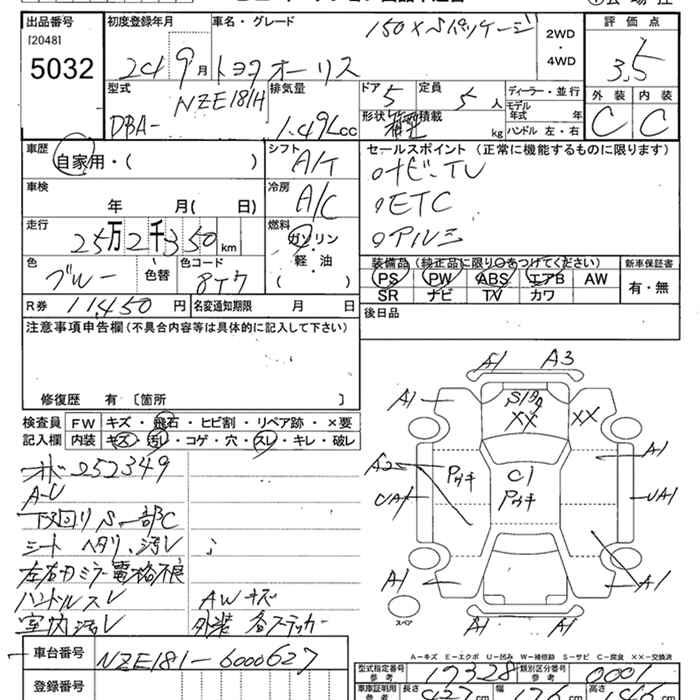 出品番号
[2048]
5032
初度登録年月
24 9月
車名・グレード
150X Sパッケージ
トヨタ オーリス
2WD
・
4WD
評価点
3.5
外装 内装
C C
型式
NZE181H
DBA-
排気量
1.49L cc
ドア 5
定員 5人
形状
積載 kg
ディーラー・並行
モデル年式 年
ハンドル 左・右
車歴
自家用・( )
シフト
A/T
車検
年 月( 日)
冷房
A/C
走行
25万2千350km
燃料
ガソリン
軽・油
( )
色
ブルー
色替
色コード
8T7
R券 11,450円
名変通知期限 月 日
セールスポイント (正常に機能するものに限ります)
ナビ・TV
ETC
アルミ
装備品 (純正品に限り○をつけてください)
PS PW ABS エアB AW
SR ナビ TV カワ
新車保証書
有・無
後日品
注意事項申告欄(不具合内容等は具体的に記入して下さい)
修復歴 有 〔箇所 〕
検査員記入欄
FW キズ・飛石・ヒビ割・リペア跡・×要
内装 キズ・汚レ・コゲ・穴・スレ・キレ・破レ
オド 252349
下回りS一部C
シート ヘタリ、汚レ
左右ドアミラー電格不良
ハンドルスレ AWキズ
室内汚レ 外装 各ステッカー
車台番号 NZE181-6000627
登録番号
A1 A3
A1 XX XX
A2 C1 A1
UA1 UA1
A1 A1
A1 A1
スペア
A－キズ E－エクボ U－凹み W－補修跡 S－サビ C－腐食 XX－交換済
型式指定番号 参考 17328
類別区分番号 参考 0001
車庫証明用 参考 長さ 幅 高さ